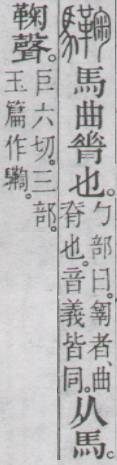 驧馬曲脊也。勹部曰。匑者、曲脊也。音義皆同。从馬。
鞠聲。巨六切。三部。玉篇作驧。